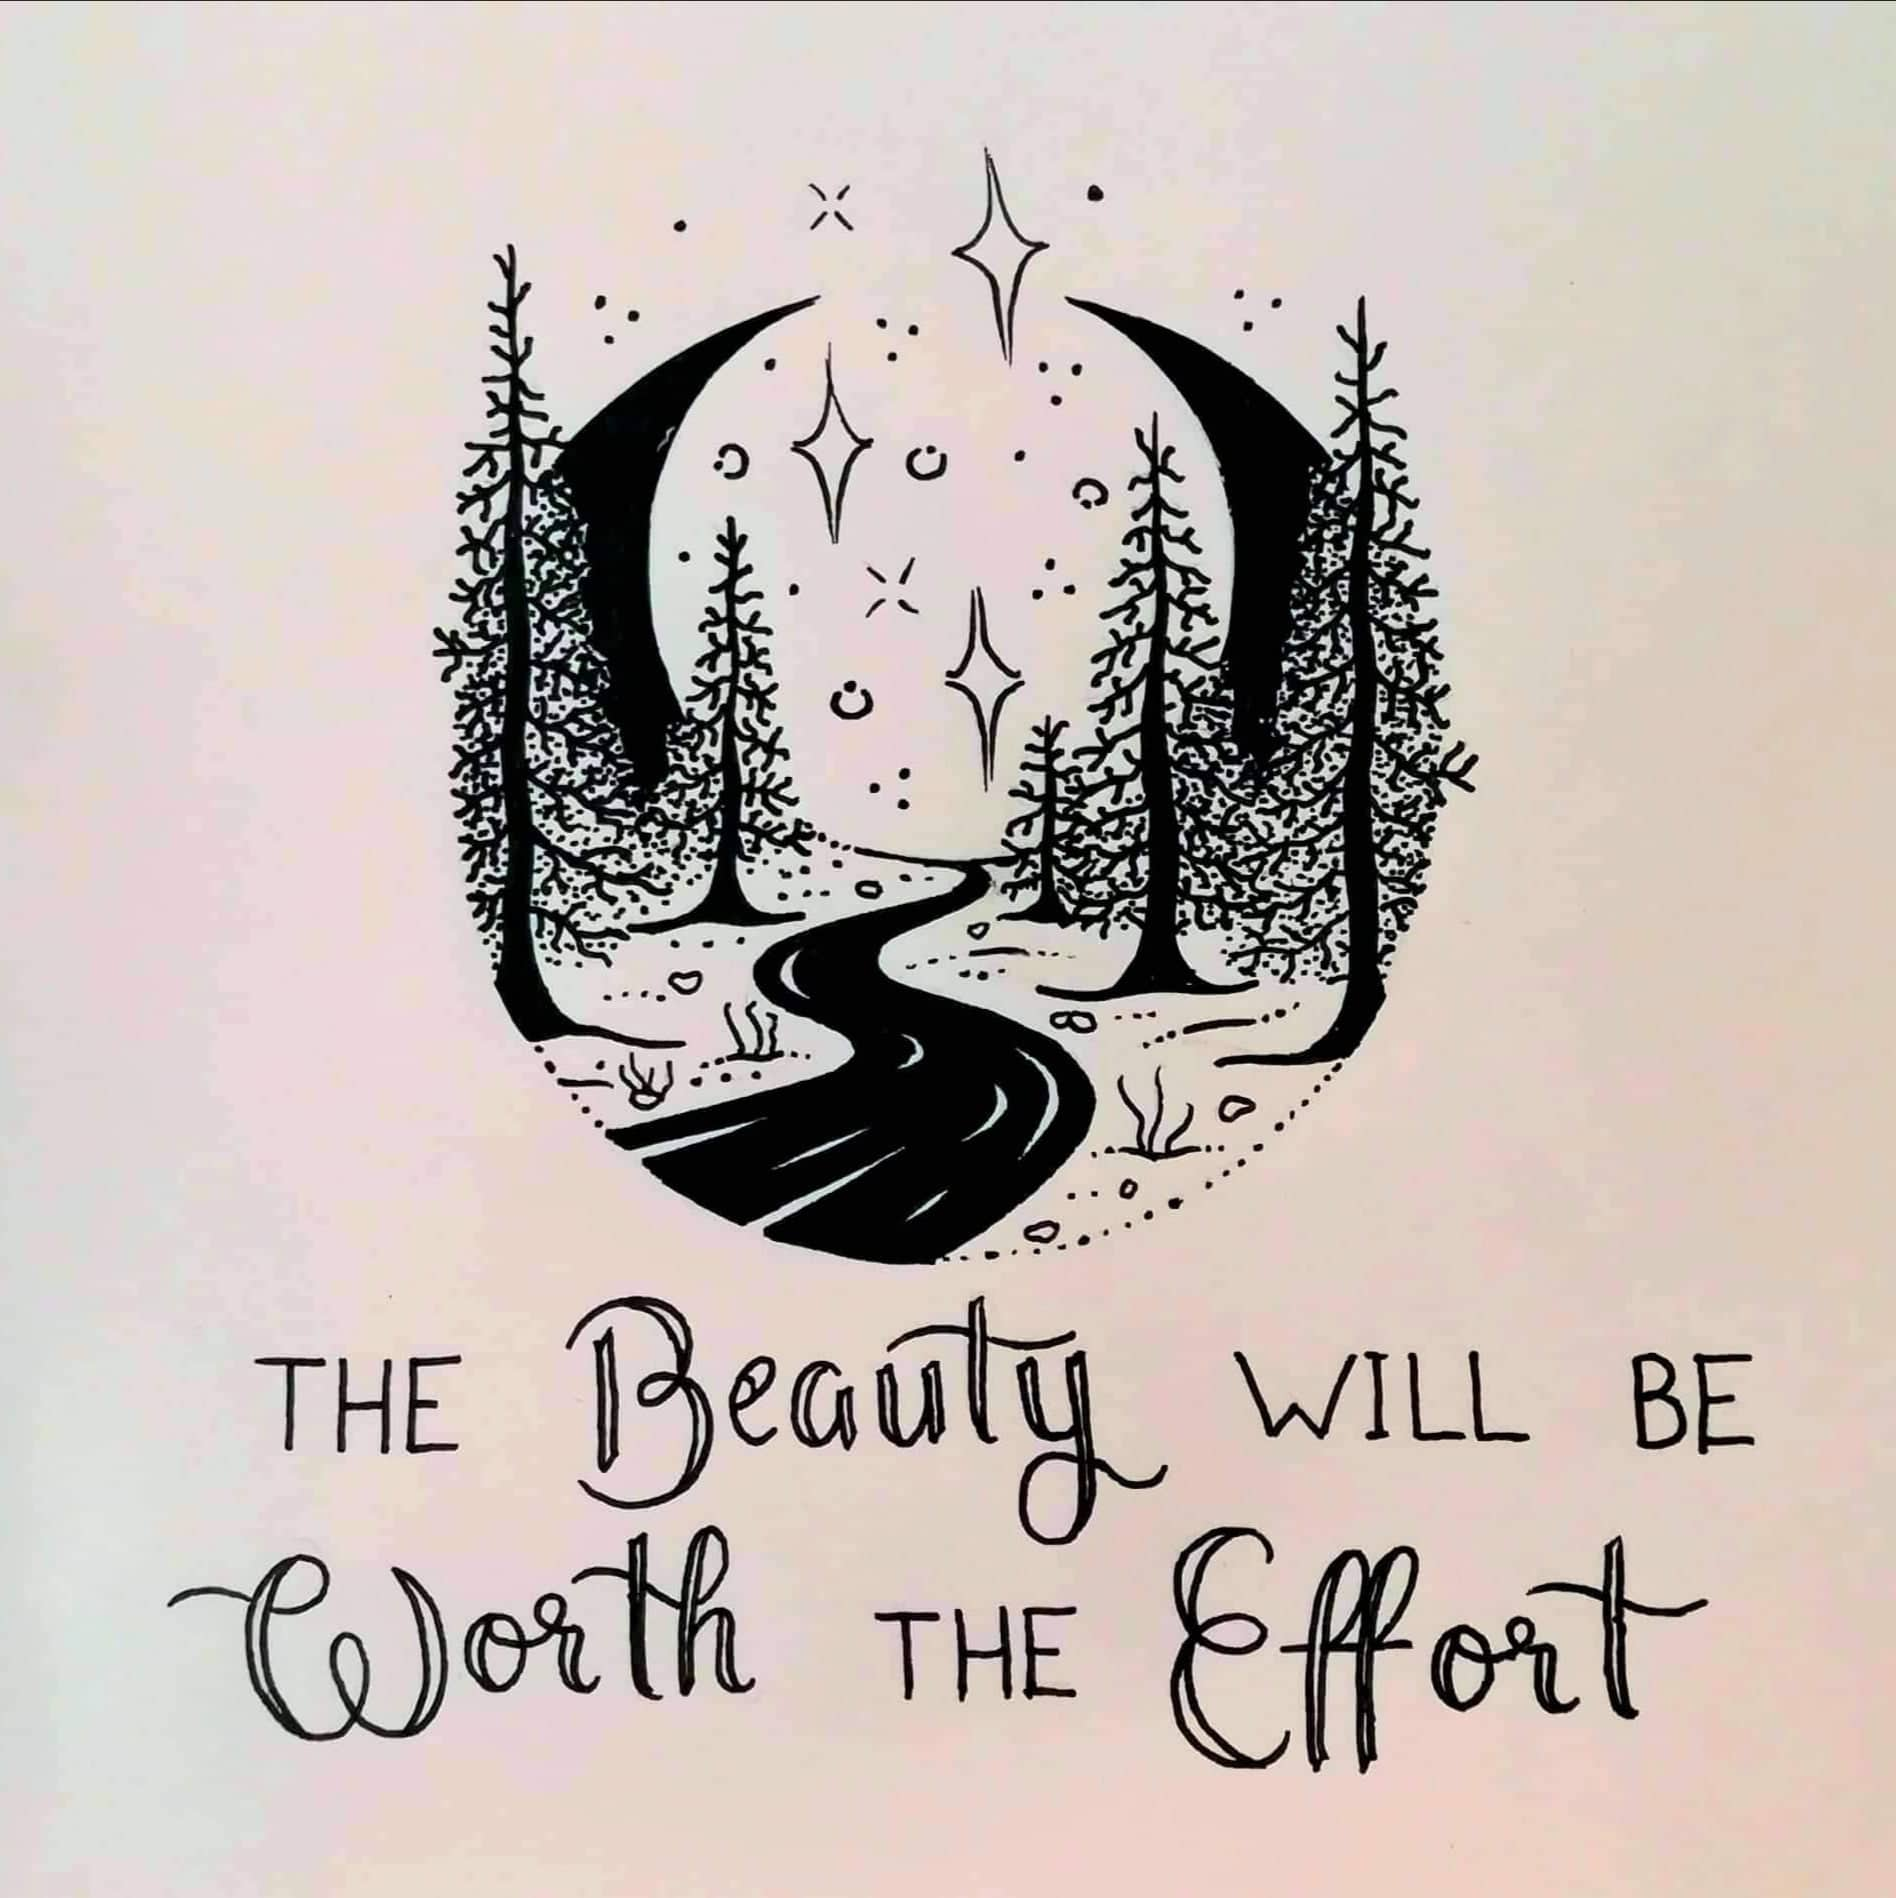 THE Beauty WILL BE
Worth THE Effort